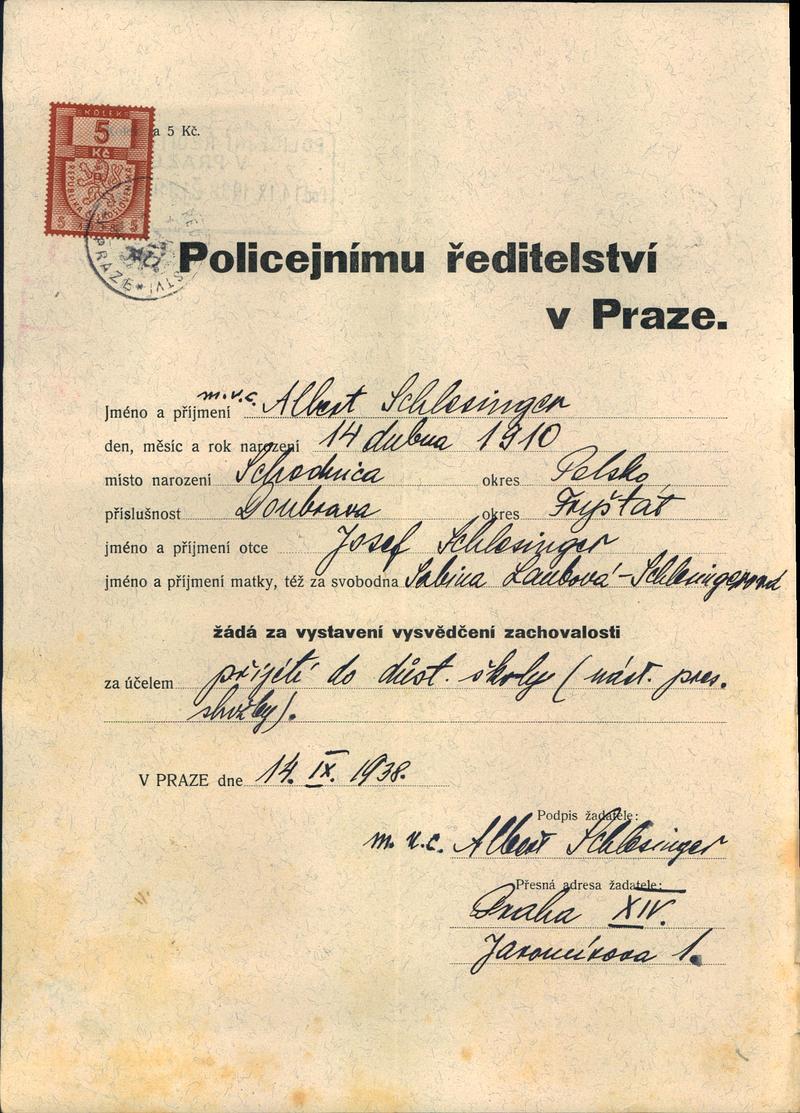 KOLEK
5
Kč
a 5 Kč.
REPUBLIKA ČESKOSLOVENSKÁ
5 5
PRAZE
Policejnímu ředitelství
v Praze.
Jméno a příjmení m.v.c. Albert Schlesinger
den, měsíc a rok narození 14 dubna 1910
místo narození Schodnica okres Polsko
příslušnost Doubrava okres Fryštát
jméno a příjmení otce Josef Schlesinger
jméno a příjmení matky, též za svobodna Sabina Laubová-Schlesingerová
žádá za vystavení vysvědčení zachovalosti
za účelem přijetí do důst. školy (nást. pres.
služby).
V PRAZE dne 14. IX. 1938.
Podpis žadatele:
m.v.c. Albert Schlesinger
Přesná adresa žadatele:
Praha XIV.
Jaromírova 1.